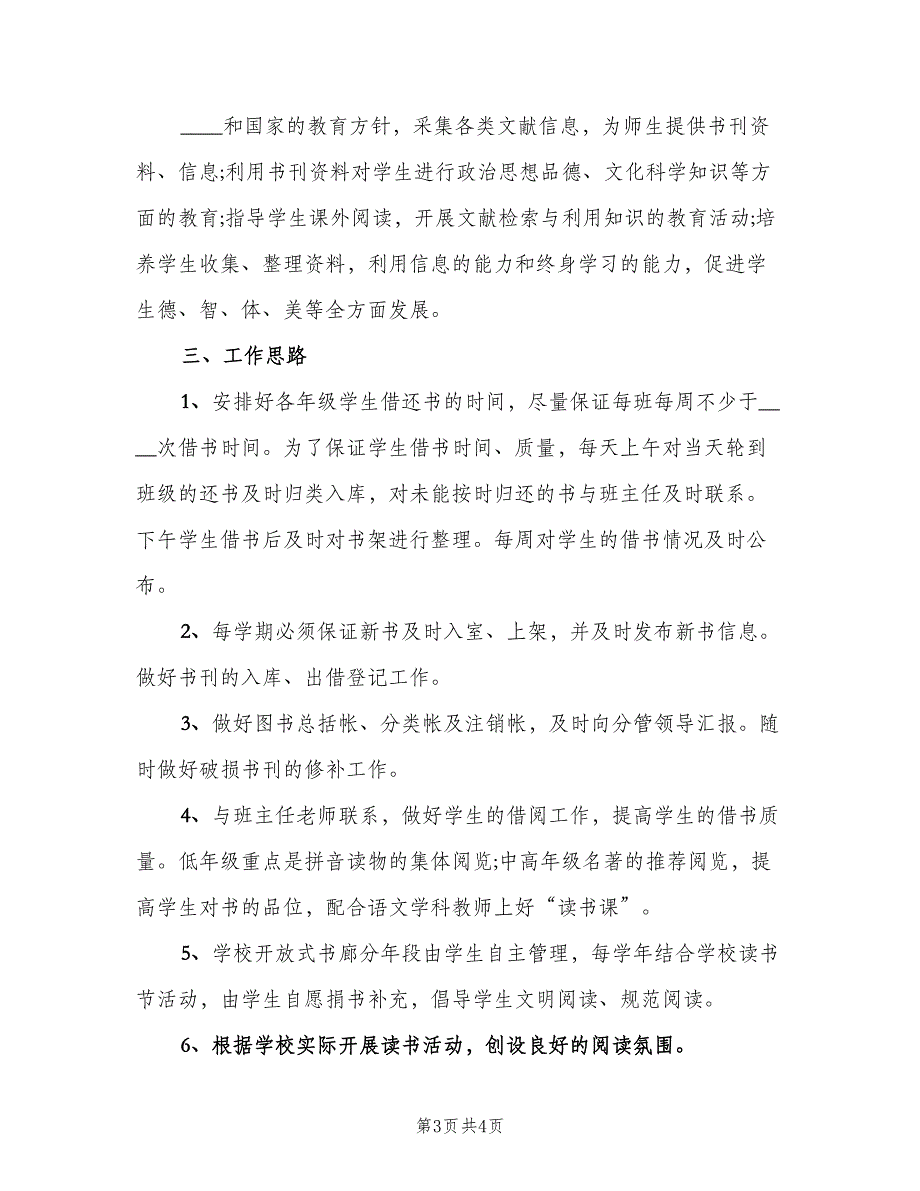 ____和国家的教育方针，采集各类文献信息，为师生提供书刊资
料、信息;利用书刊资料对学生进行政治思想品德、文化科学知识等方
面的教育;指导学生课外阅读，开展文献检索与利用知识的教育活动;培
养学生收集、整理资料，利用信息的能力和终身学习的能力，促进学
生德、智、体、美等全方面发展。
三、工作思路
1、安排好各年级学生借还书的时间，尽量保证每班每周不少于__
__次借书时间。为了保证学生借书时间、质量，每天上午对当天轮到
班级的还书及时归类入库，对未能按时归还的书与班主任及时联系。
下午学生借书后及时对书架进行整理。每周对学生的借书情况及时公
布。
2、每学期必须保证新书及时入室、上架，并及时发布新书信息。
做好书刊的入库、出借登记工作。
3、做好图书总括帐、分类帐及注销帐，及时向分管领导汇报。随
时做好破损书刊的修补工作。
4、与班主任老师联系，做好学生的借阅工作，提高学生的借书质
量。低年级重点是拼音读物的集体阅览;中高年级名著的推荐阅览，提
高学生对书的品位，配合语文学科教师上好“读书课”。
5、学校开放式书廊分年段由学生自主管理，每学年结合学校读书
节活动，由学生自愿捐书补充，倡导学生文明阅读、规范阅读。
6、根据学校实际开展读书活动，创设良好的阅读氛围。
第3页共4页